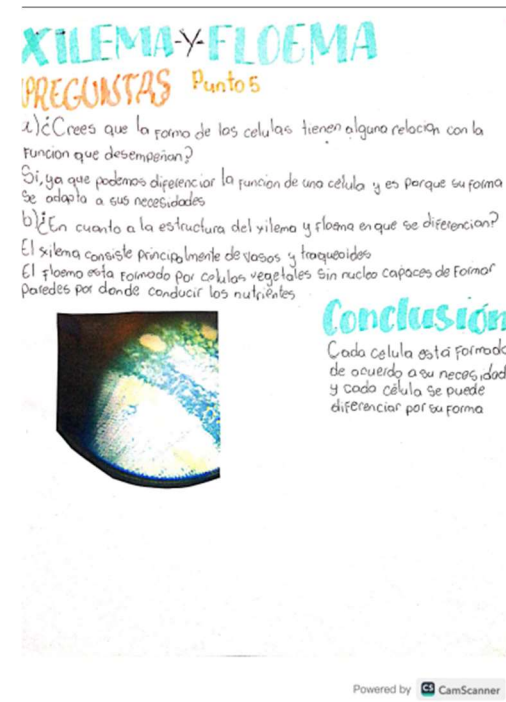 XILEMA-Y-FLOEMA
PREGUNTAS Punto 5
a)¿Crees que la forma de las celulas tienen alguna relación con la
Funcion que desempeñan?
Sí, ya que podemos diferenciar la funcion de una célula y es porque su forma
Se adapta a sus necesidades
b)¿En cuanto a la estructura del xilema y floema en que se diferencian?
El xilema consiste principalmente de vasos y traqueoides
El floema esta formado por celulas vegetales sin nucleo capaces de Formar
paredes por donde conducir los nutrientes
Conclusión
Cada celula está Formada
de acuerdo a su necesidad
y cada célula se puede
diferenciar por su forma
Powered by CS CamScanner